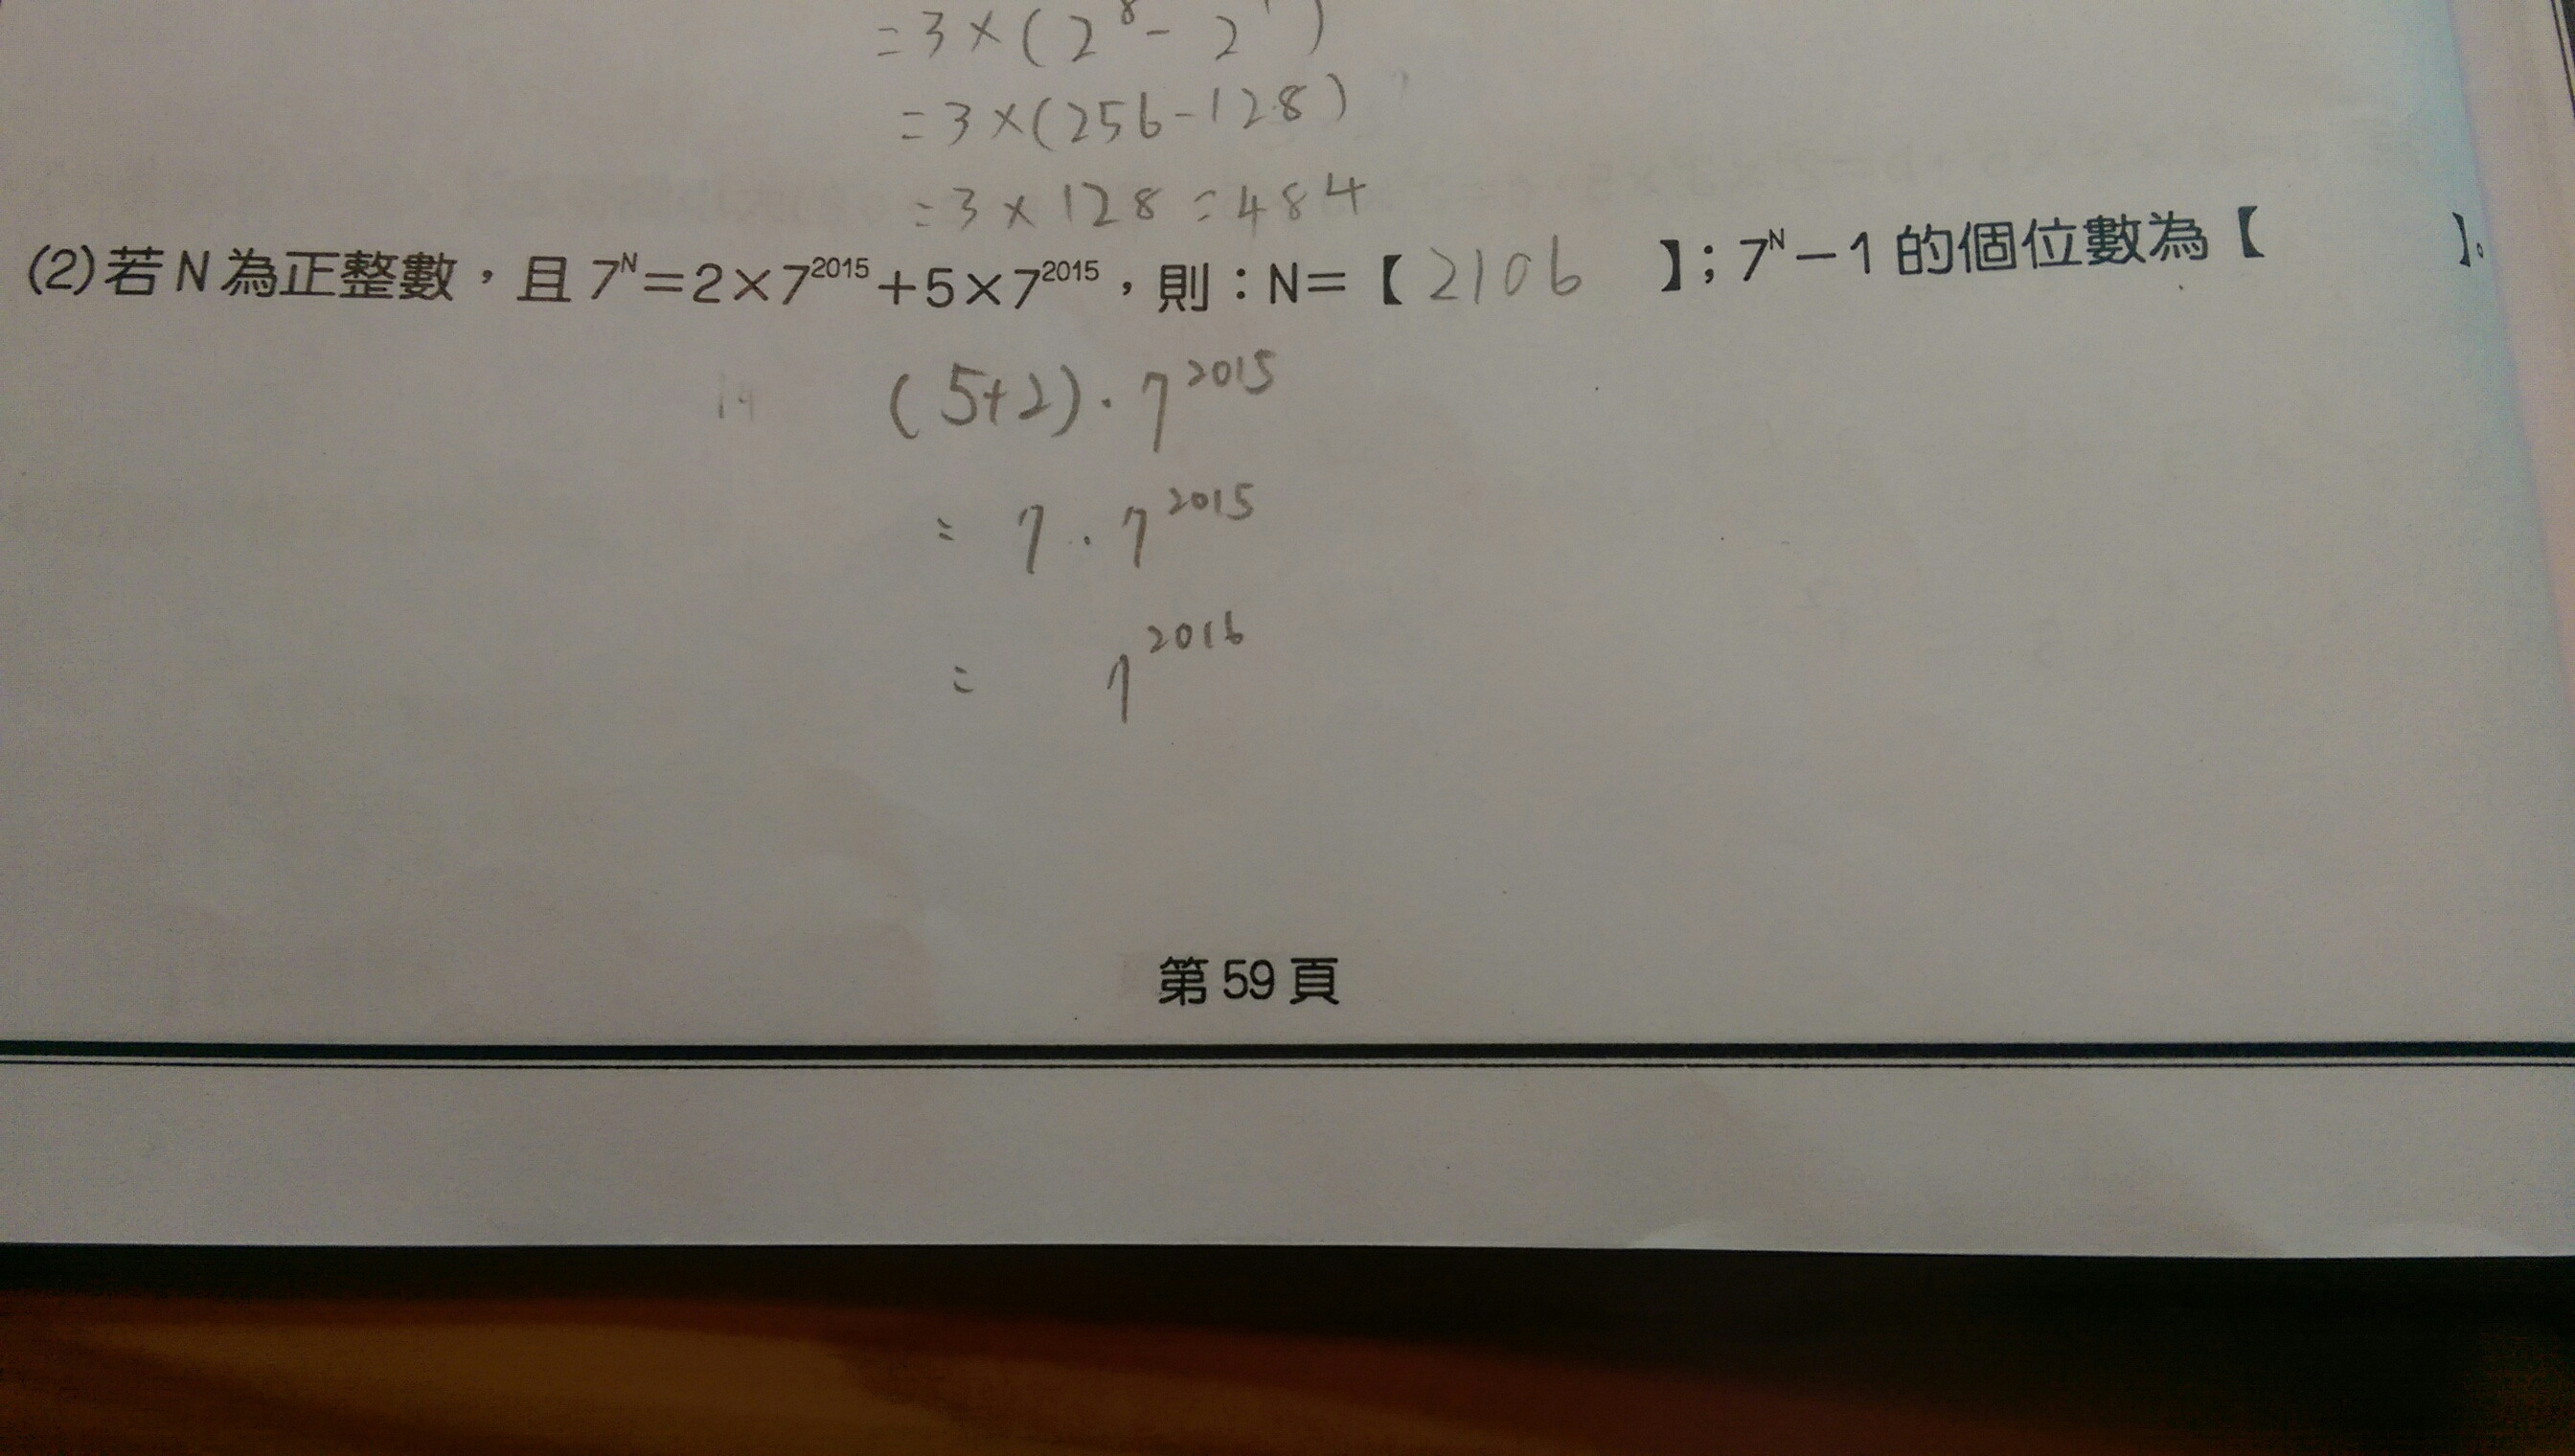 =3×(2⁸-2 )
=3×(256-128)
=3×128=484
(2)若N為正整數，且7ᴺ=2×7²⁰¹⁵+5×7²⁰¹⁵，則：N=【2106】；7ᴺ-1的個位數為【 】。
(5+2)·7²⁰¹⁵
=7·7²⁰¹⁵
=7²⁰¹⁶
第59頁